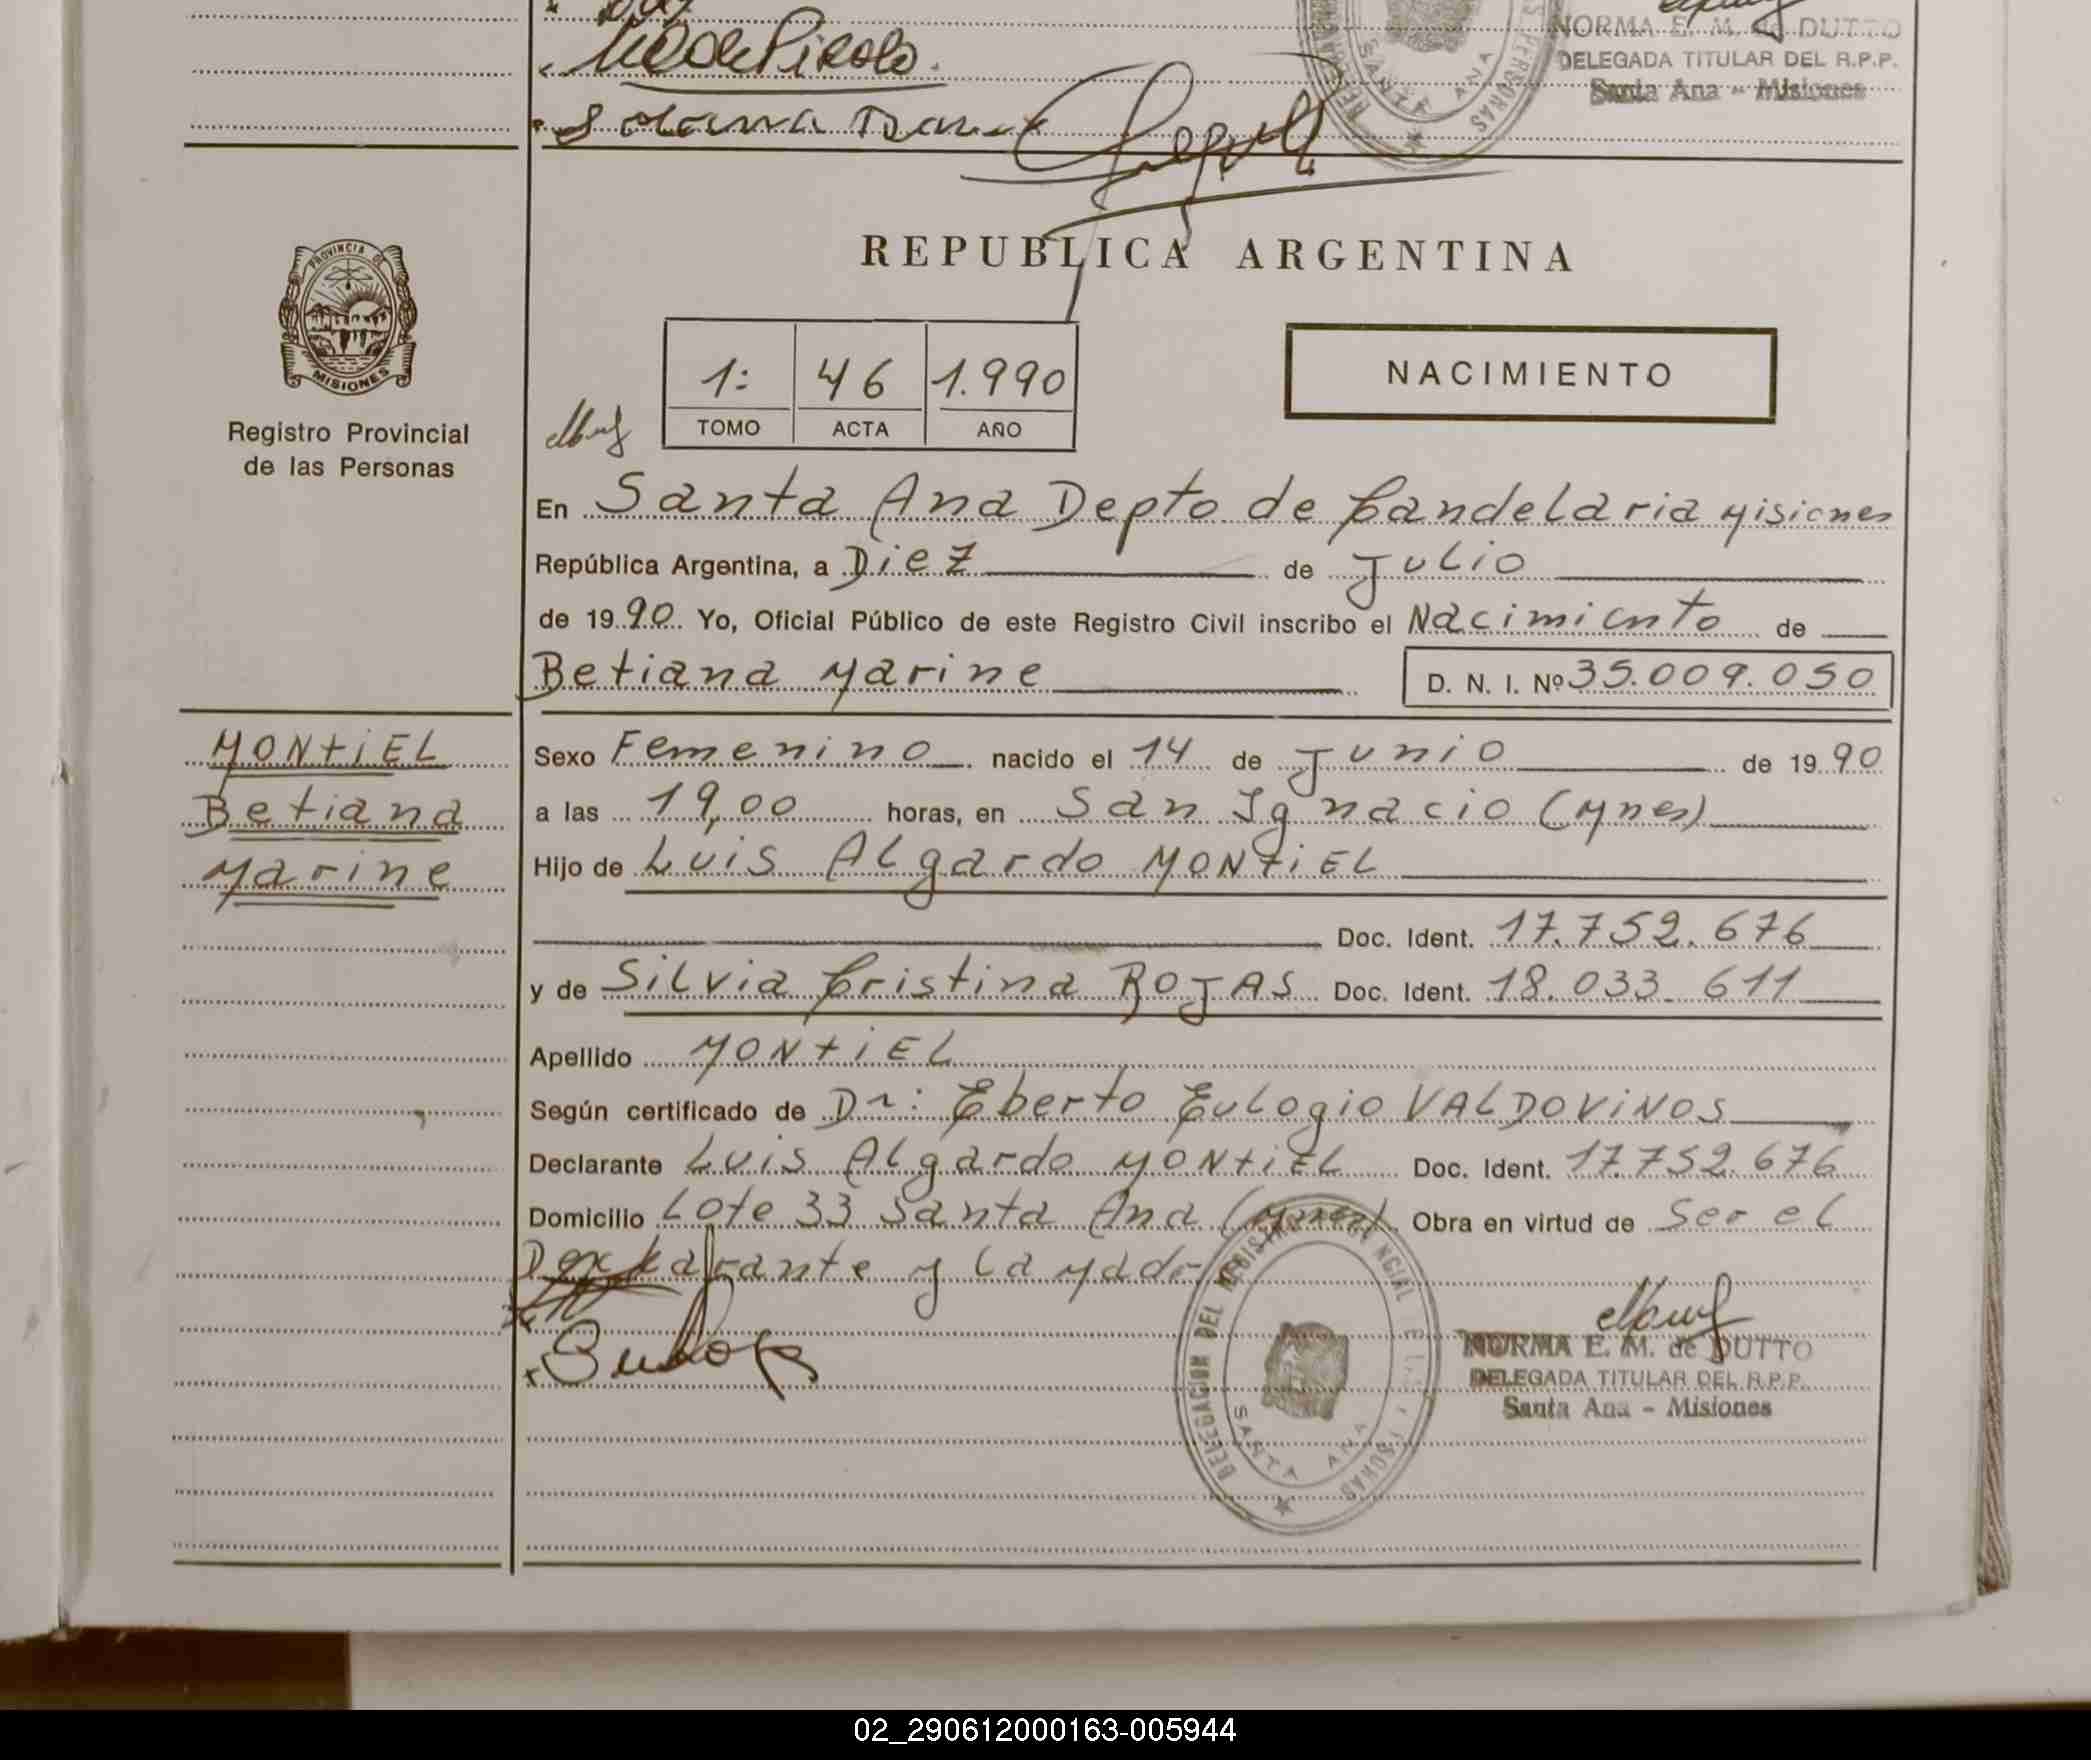 NORMA E. M. de DUTTO
DELEGADA TITULAR DEL R.P.P.
Santa Ana - Misiones
SANTA ANA
PROVINCIA DE
MISIONES
Registro Provincial
de las Personas
REPUBLICA ARGENTINA
1: 46 1.990
TOMO ACTA AÑO
NACIMIENTO
En Santa Ana Depto de Candelaria Misiones
República Argentina, a Diez de Julio
de 1990 Yo, Oficial Público de este Registro Civil inscribo el Nacimiento de
Betiana Marine D. N. I. Nº 35.009.050
MONTIEL
Betiana
Marine
Sexo Femenino nacido el 14 de Junio de 1990
a las 19,00 horas, en San Ignacio (Mnes)
Hijo de Luis Algardo MONTIEL
Doc. Ident. 17.752.676
y de Silvia Cristina ROJAS Doc. Ident. 18.033.611
Apellido MONTIEL
Según certificado de Dr: Eberto Eulogio VALDOVINOS
Declarante Luis Algardo MONTIEL Doc. Ident. 17.752.676
Domicilio Lote 33 Santa Ana (Mnes) Obra en virtud de Ser el
Declarante y la Madre
DELEGACION DEL REGISTRO PROVINCIAL DE LAS PERSONAS
SANTA ANA
NORMA E. M. de DUTTO
DELEGADA TITULAR DEL R.P.P.
Santa Ana - Misiones
02_290612000163-005944